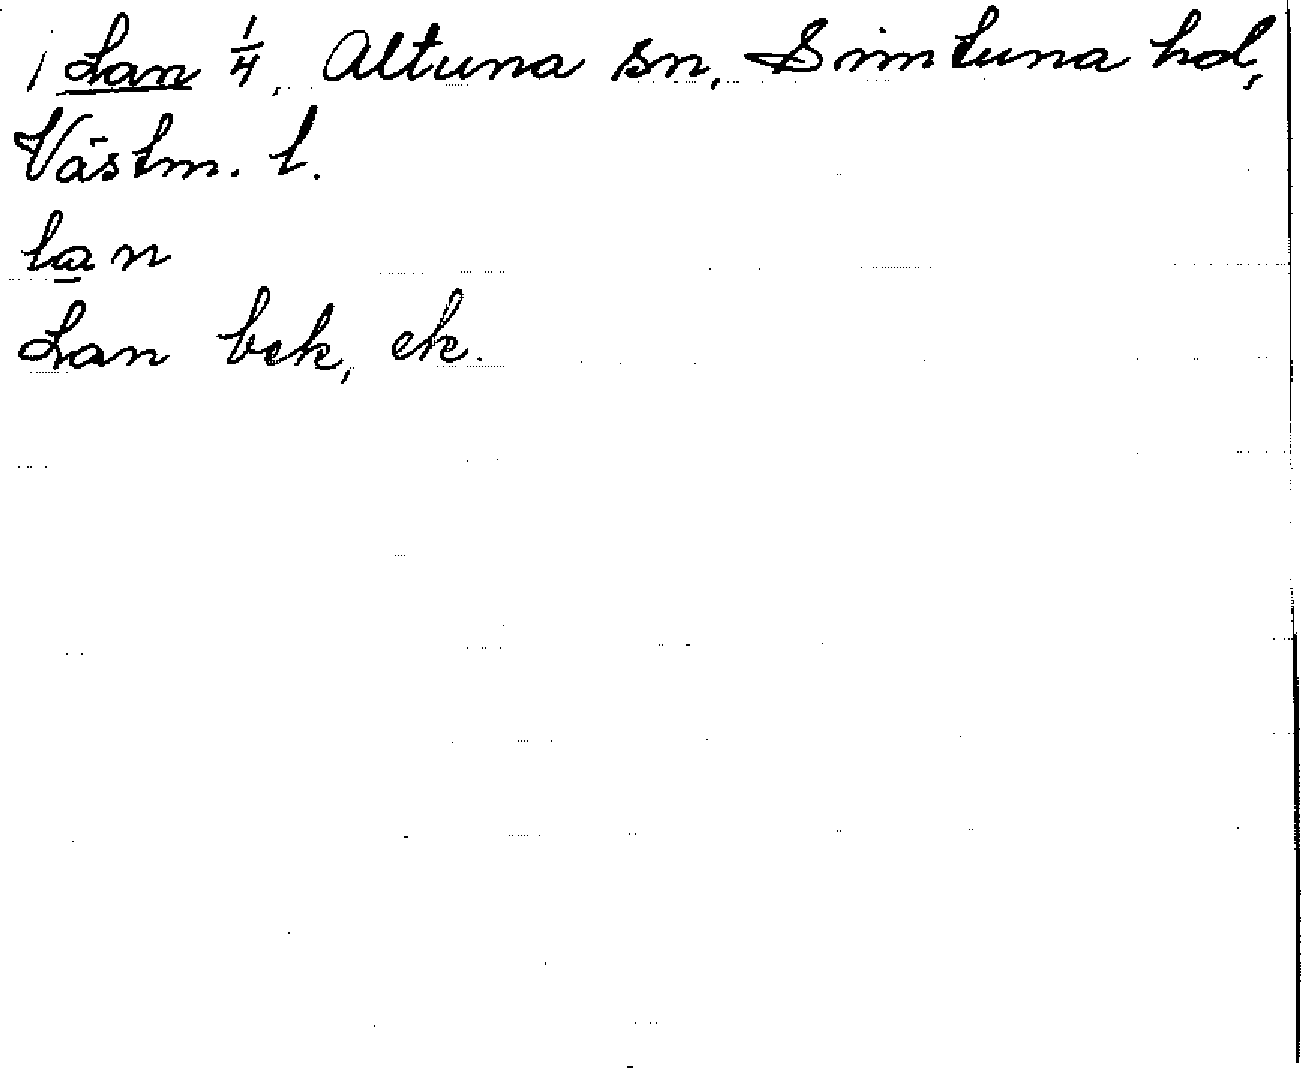 i Lan 1/4, Altuna sn, Simtuna hd,
Västm. l.
lan
Lan bek, ek.